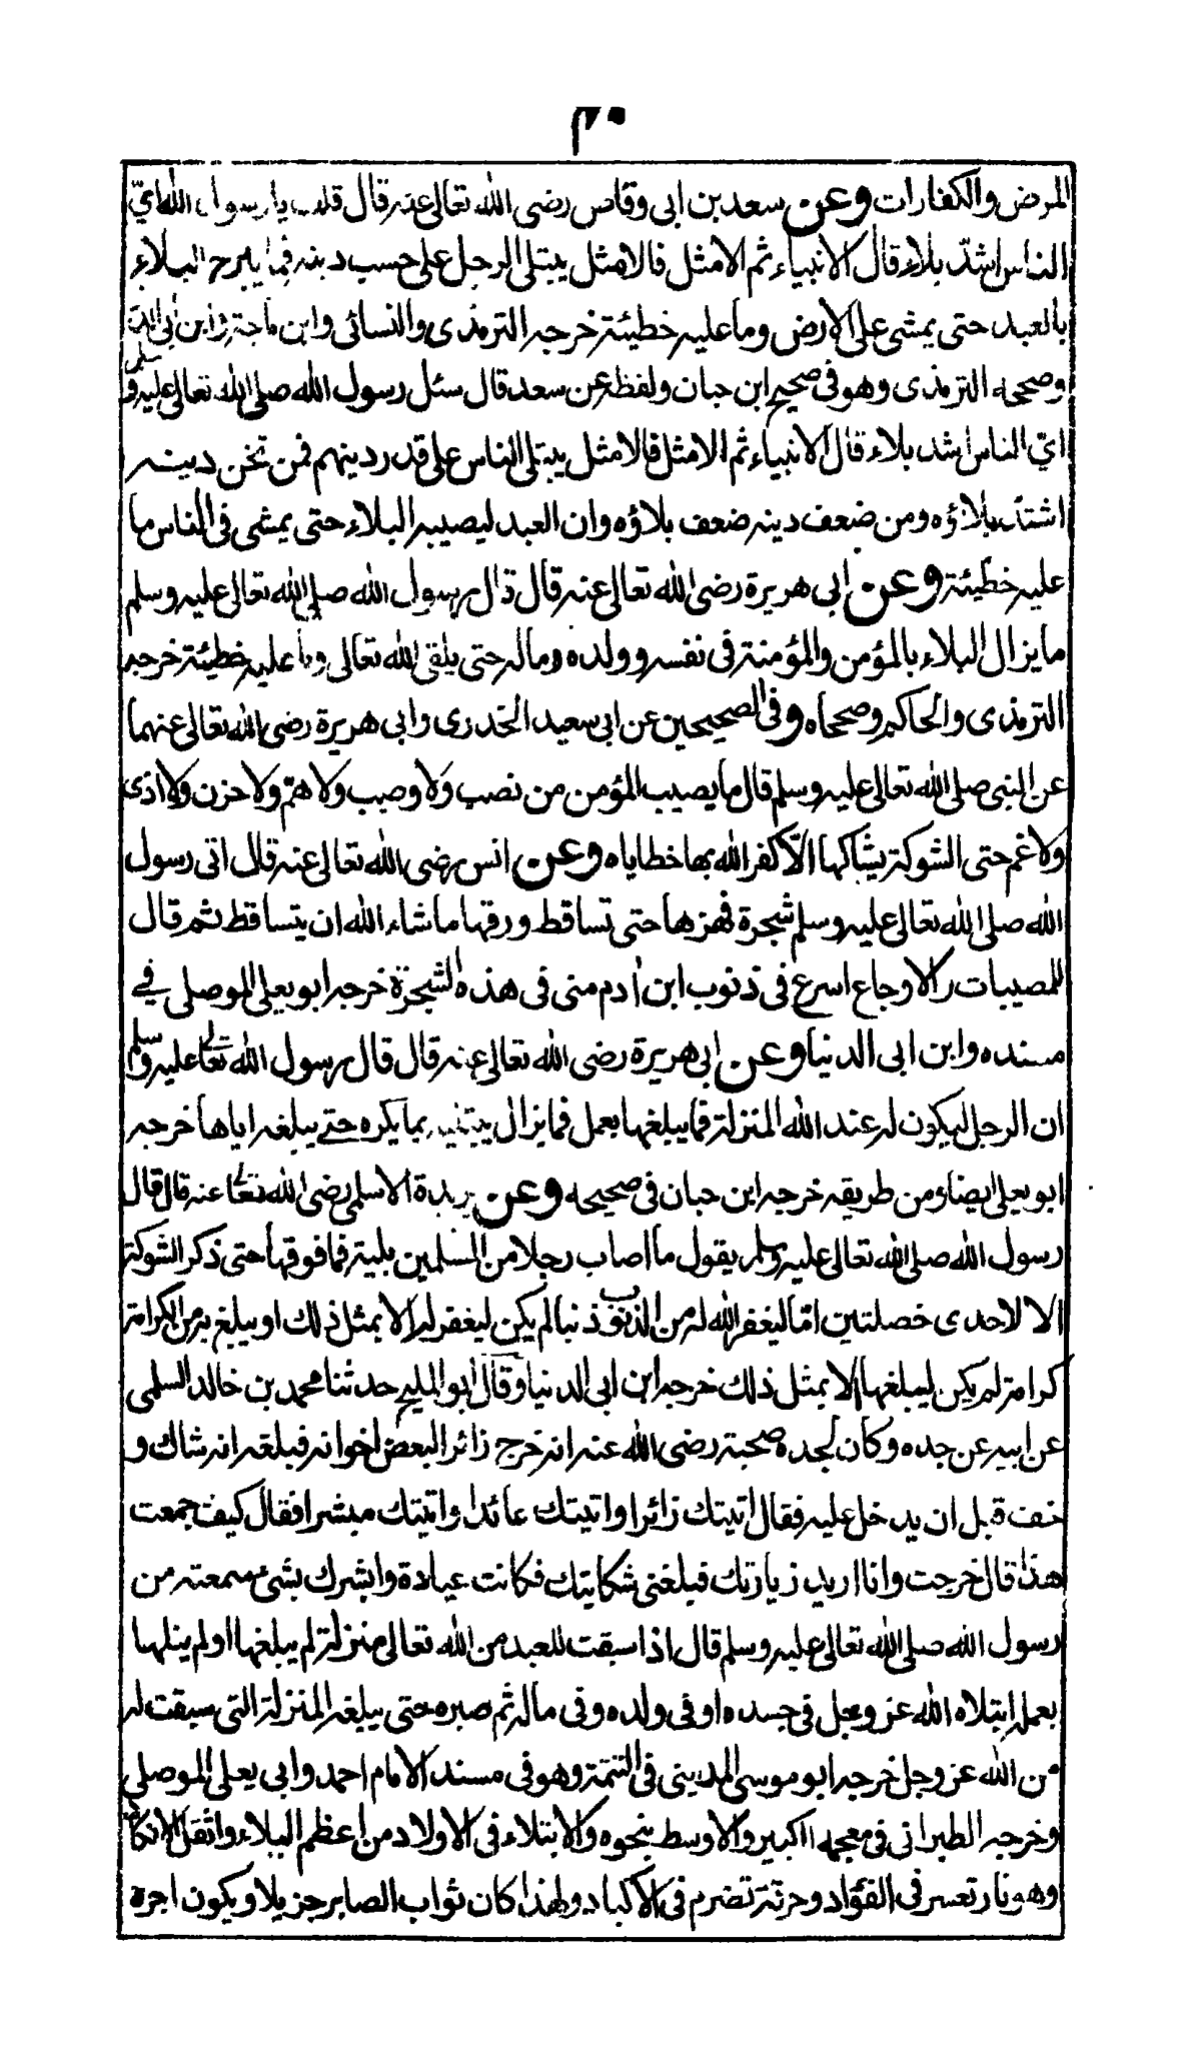 ٢٠
المرض والكفارات وعن سعد بن ابى وقاص رضى الله تعالى عنه قال قلت يا رسول الله اىّ
الناس اشدّ بلاء قال الانبياء ثم الامثل فالامثل يبتلى الرجل على حسب دينه فما يبرح البلاء
بالعبد حتى يمشى على الارض وما عليه خطيئة خرجه الترمذى والنسائى وابن ماجة وابن ابى الدنيا
وصححه الترمذى وهو فى صحيح ابن حبان ولفظه عن سعد قال سئل رسول الله صلى الله تعالى عليه وسلم
اىّ الناس اشد بلاء قال الانبياء ثم الامثل فالامثل يبتلى الناس على قدر دينهم فمن ثخن دينه
اشتد بلاؤه ومن ضعف دينه ضعف بلاؤه وان العبد ليصيبه البلاء حتى يمشى فى الناس ما
عليه خطيئة وعن ابى هريرة رضى الله تعالى عنه قال قال رسول الله صلى الله تعالى عليه وسلم
ما يزال البلاء بالمؤمن والمؤمنة فى نفسه وولده وماله حتى يلقى الله تعالى وما عليه خطيئة خرجه
الترمذى والحاكم وصححاه وفى الصحيحين عن ابى سعيد الخدرى وابى هريرة رضى الله تعالى عنهما
عن النبى صلى الله تعالى عليه وسلم قال ما يصيب المؤمن من نصب ولا وصب ولا همّ ولا حزن ولا اذى
ولا غم حتى الشوكة يشاكها الّا كفر الله بها خطاياه وعن انس رضى الله تعالى عنه قال اتى رسول
الله صلى الله تعالى عليه وسلم شجرة فهزها حتى تساقط ورقها ما شاء الله ان يتساقط ثم قال
للمصيبات والاوجاع اسرع فى ذنوب ابن ادم منى فى هذه الشجرة خرجه ابو يعلى الموصلى فى
مسنده وابن ابى الدنيا وعن ابى هريرة رضى الله تعالى عنه قال قال رسول الله تعالى عليه وسلم
ان الرجل ليكون له عند الله المنزلة فما يبلغها بعمل فما يزال يبتليه بما يكره حتى يبلغه اياها خرجه
ابو يعلى ايضاء ومن طريقه خرجه ابن حبان فى صحيحه وعن بريدة الاسلمى رضى الله تعالى عنه قال قال
رسول الله صلى الله تعالى عليه وسلم يقول ما اصاب رجلا من المسلمين بلية فما فوقها حتى ذكر الشوكة
الا لاحدى خصلتين امّا ليغفر الله له من الذنوب ذنبا لم يكن ليغفر له الا بمثل ذلك او يبلغ به من الكرامة
كرامة لم يكن ليبلغها الا بمثل ذلك خرجه ابن ابى الدنيا وقال ابو المليح حدثنا محمد بن خالد السلمى
عن ابيه عن جده وكان لجده صحبة رضى الله عنه انه خرج زائرا لبعض اخوانه فبلغه انه شاك و
خف قبل ان يدخل عليه فقال اتيتك زائرا واتيتك عائدا واتيتك مبشرا فقال كيف جمعت
هذا قال خرجت وانا اريد زيارتك فبلغنى شكايتك فكانت عيادة وابشرك بشئ سمعته من
رسول الله صلى الله تعالى عليه وسلم قال اذا سبقت للعبد من الله تعالى منزلة لم يبلغها او لم ينلها
بعمله ابتلاه الله عز وجل فى جسده او فى ولده وفى ماله ثم صبره حتى يبلغه المنزلة التى سبقت له
من الله عز وجل خرجه ابو موسى المدينى فى التتمة وهو فى مسند الامام احمد وابى يعلى الموصلى
وخرجه الطبرانى فى معجمه الكبير والاوسط بنحوه والابتلاء فى الاولاد من اعظم البلاء واثقل الانكاد
وهو نار تعسر فى الفؤاد وحرقة تضرم فى الاكباد ولهذا كان ثواب الصابر جزيلا ويكون اجره